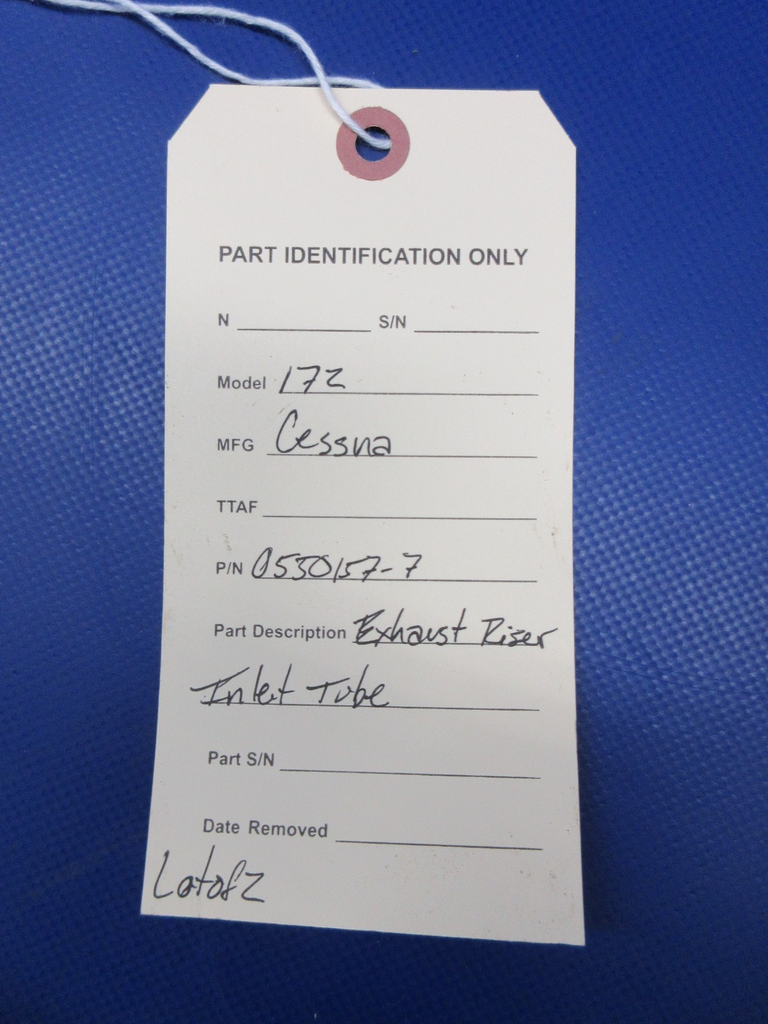 PART IDENTIFICATION ONLY
N S/N
Model 172
MFG Cessna
TTAF
P/N 0550157-7
Part Description Exhaust Riser
Inlet Tube
Part S/N
Date Removed
Lot of 2